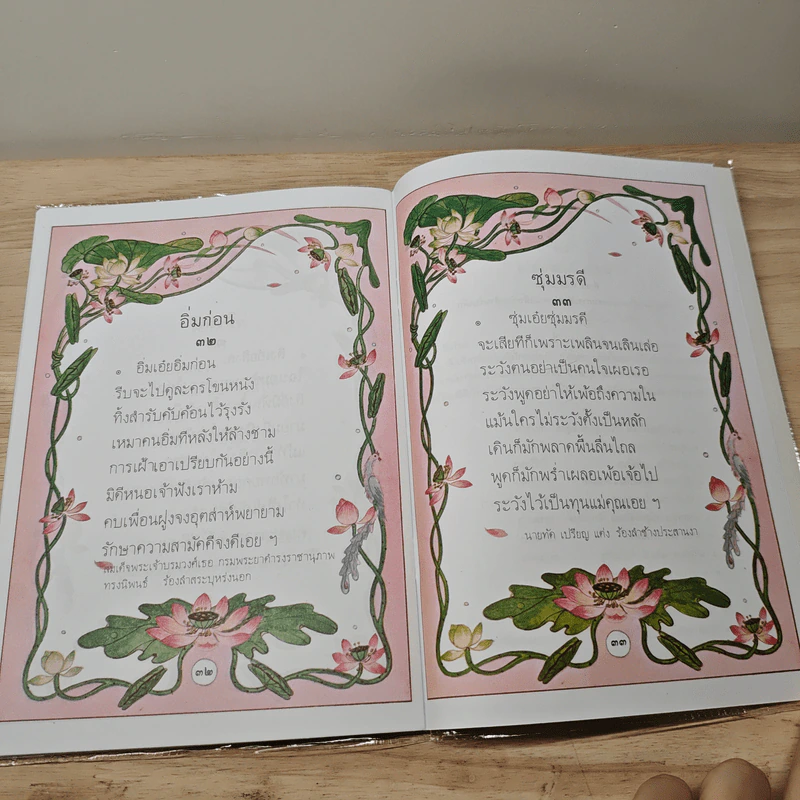 อิ่มก่อน
๓๒
๑ อิ่มเอ๋ยอิ่มก่อน
รีบจะไปดูละครโขนหนัง
ทิ้งสำรับคับค้อนไว้รุงรัง
เหมาคนอิ่มทีหลังให้ล้างชาม
การเฝ้าเอาเปรียบกันอย่างนี้
มิดีหนอเจ้าฟังเราห้าม
คบเพื่อนฝูงจงอุตส่าห์พยายาม
รักษาความสามัคคีจงดีเอย ฯ
สมเด็จพระเจ้าบรมวงศ์เธอ กรมพระยาดำรงราชานุภาพ
ทรงนิพนธ์ ร้องลำสระบุหร่งนอก
๓๒
ซุ่มมรดี
๓๓
๑ ซุ่มเอ๋ยซุ่มมรดี
จะเสียทีก็เพราะเพลินจนเลินเล่อ
ระวังตนอย่าเป็นคนใจเผอเรอ
ระวังพูดอย่าให้เพ้อถึงความใน
แม้นใครไม่ระวังตั้งเป็นหลัก
เดินก็มักพลาดพื้นลื่นไถล
พูดก็มักพร่ำเผลอเพ้อเจ้อไป
ระวังไว้เป็นทุนแม่คุณเอย ฯ
นายทัด เปรียญ แต่ง ร้องลำช้างประสานงา
๓๓